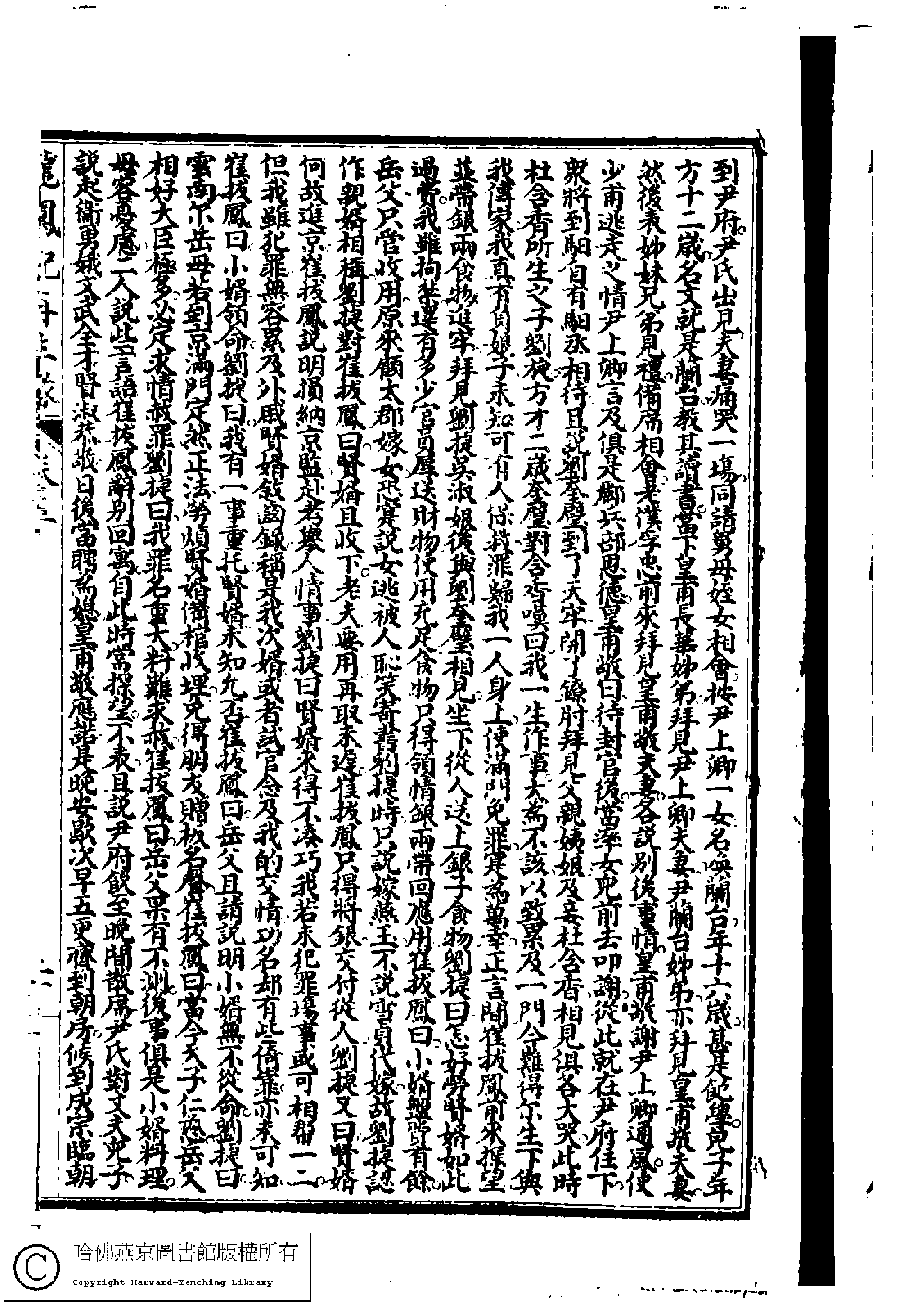 到尹府尹氏出見夫妻痛哭一塲同請舅母姪女相會按尹上卿一女名喚蘭台年十六歲甚是飽學兒子年
方十二歲名文就是蘭台教其讀書當下皇甫長華姊弟拜見尹上卿夫妻尹蘭台姊弟亦拜見皇甫敬夫妻
然後表姊妹兄弟見禮備席相會老僕孝忠前來拜見皇甫敬夫妻各說別後事情皇甫敬謝尹上卿通風使
少甫逃走之情尹上卿言及俱是酈兵部恩德皇甫敬曰待封官後當率女兒前去叩謝從此就在尹府住下
衆將到馹自有馹丞相待且説劉奎璧到了天牢開了鐐肘拜見父親姨娘及妾杜含香相見俱各大哭此時
杜含香所生之子劉旋方才二歲奎璧對含香嘆曰我一生作事大為不該以致累及一門今難得尔生下與
我傳家我真有負娘子未知可有人保救罪歸我一人身上使滿門免罪寔為萬幸正言間崔拔鳳前來探望
並帶銀兩食物進牢拜見劉捷吳淑娘後與劉奎璧相見坐下從人送上銀子食物劉捷曰怎好勞賢婿如此
過費我雖拘禁還有多少官員屢送財物使用充足食物只得領情銀兩帶回應用崔拔鳳曰小婿盤費有餘
岳父只管收用原來顧太郡嫁女恐寔說女逃被人恥笑寄書劉捷時只說嫁燕玉不說雪貞代嫁故劉捷認
作親婿相稱劉捷對崔拔鳳曰賢婿且收下老夫要用再取未遲崔拔鳳只得將銀交付從人劉捷又曰賢婿
何故進京崔拔鳳說明損納京監赴考舉人情事劉捷曰賢婿來得不湊巧我若未犯罪塲事或可相帮一二
但我雖犯罪無容累及外戚賢婿敘齒錄稱是我次婿或者試官念及我的交情功名却有些倚靠亦未可知
崔拔鳳曰小婿領命劉捷曰我有一事重托賢婿未知允否崔拔鳳曰岳父且請說明小婿無不從命劉捷曰
雲南尔岳母若到京滿門定然正法勞煩賢婿備棺收埋免得朋友贈板名聲崔拔鳳曰當今天子仁慈岳父
相好大臣極多必定求情赦罪劉捷曰我罪名重大料難求赦崔拔鳳曰岳父果有不測後事俱是小婿料理
毋容憂慮二人說些言語崔拔鳳辭別回寓自此時常探望不表且說尹府飲至晚間散席尹氏對丈夫兒子
說起衛勇娥文武全才賢淑恭敬日後當聘為媳皇甫敬應諾是晚安歇次早五更齊到朝房候到成宗臨朝
龍鳳配再生緣
哈佛燕京圖書館版權所有
Copyright Harvard-Yenching Library